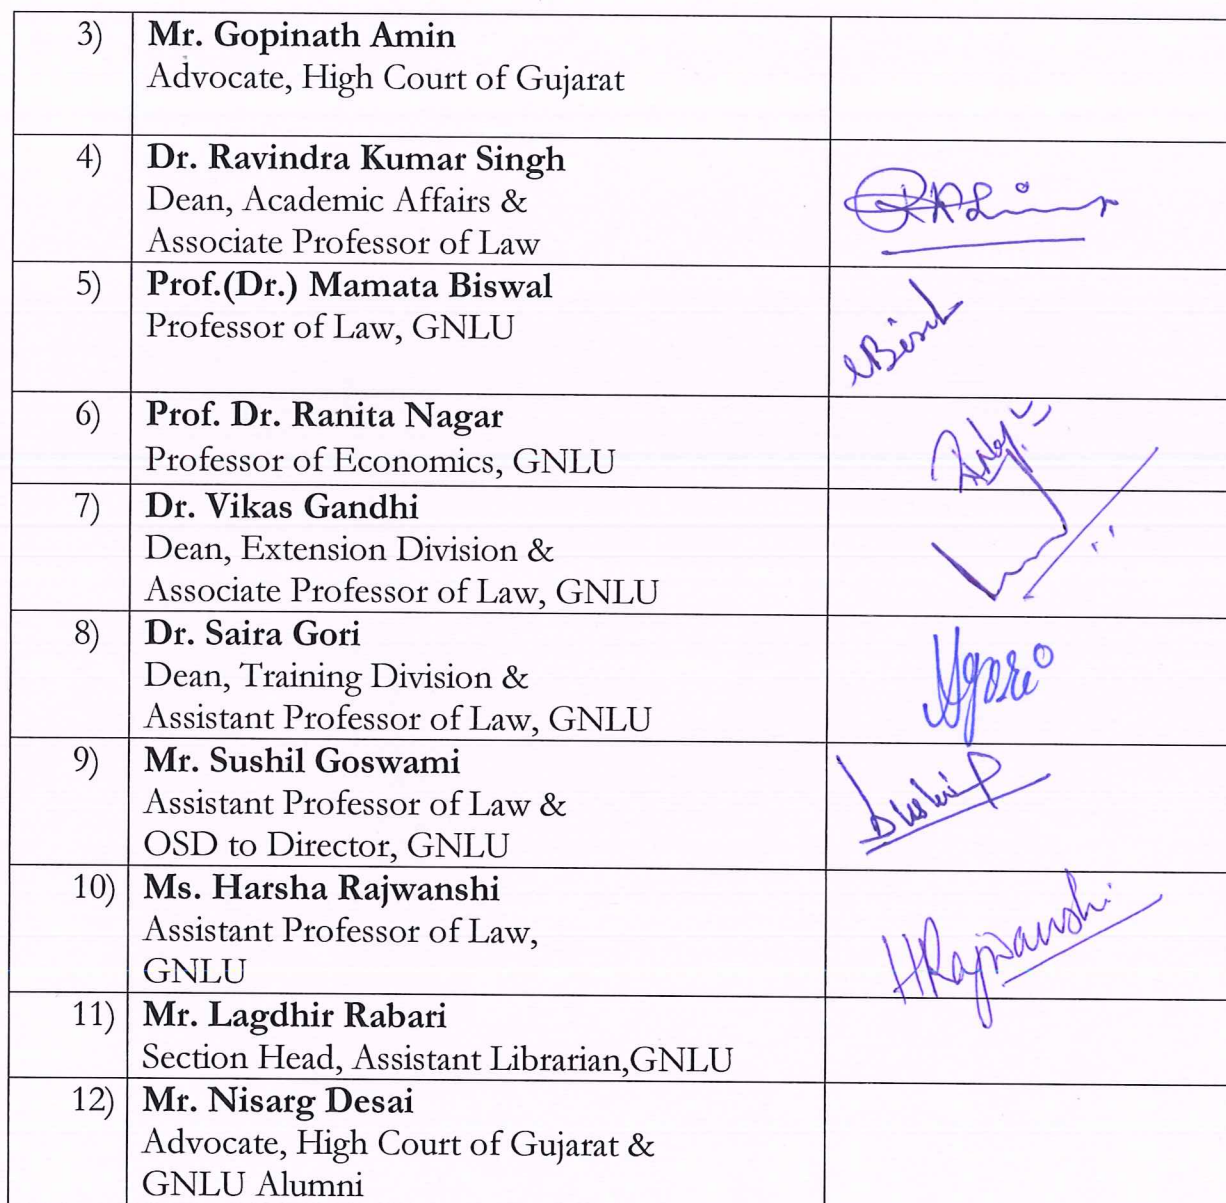 3) Mr. Gopinath Amin
Advocate, High Court of Gujarat
4) Dr. Ravindra Kumar Singh
Dean, Academic Affairs &
Associate Professor of Law
5) Prof.(Dr.) Mamata Biswal
Professor of Law, GNLU
6) Prof. Dr. Ranita Nagar
Professor of Economics, GNLU
7) Dr. Vikas Gandhi
Dean, Extension Division &
Associate Professor of Law, GNLU
8) Dr. Saira Gori
Dean, Training Division &
Assistant Professor of Law, GNLU
9) Mr. Sushil Goswami
Assistant Professor of Law &
OSD to Director, GNLU
10) Ms. Harsha Rajwanshi
Assistant Professor of Law,
GNLU
HRajwanshi
11) Mr. Lagdhir Rabari
Section Head, Assistant Librarian,GNLU
12) Mr. Nisarg Desai
Advocate, High Court of Gujarat &
GNLU Alumni